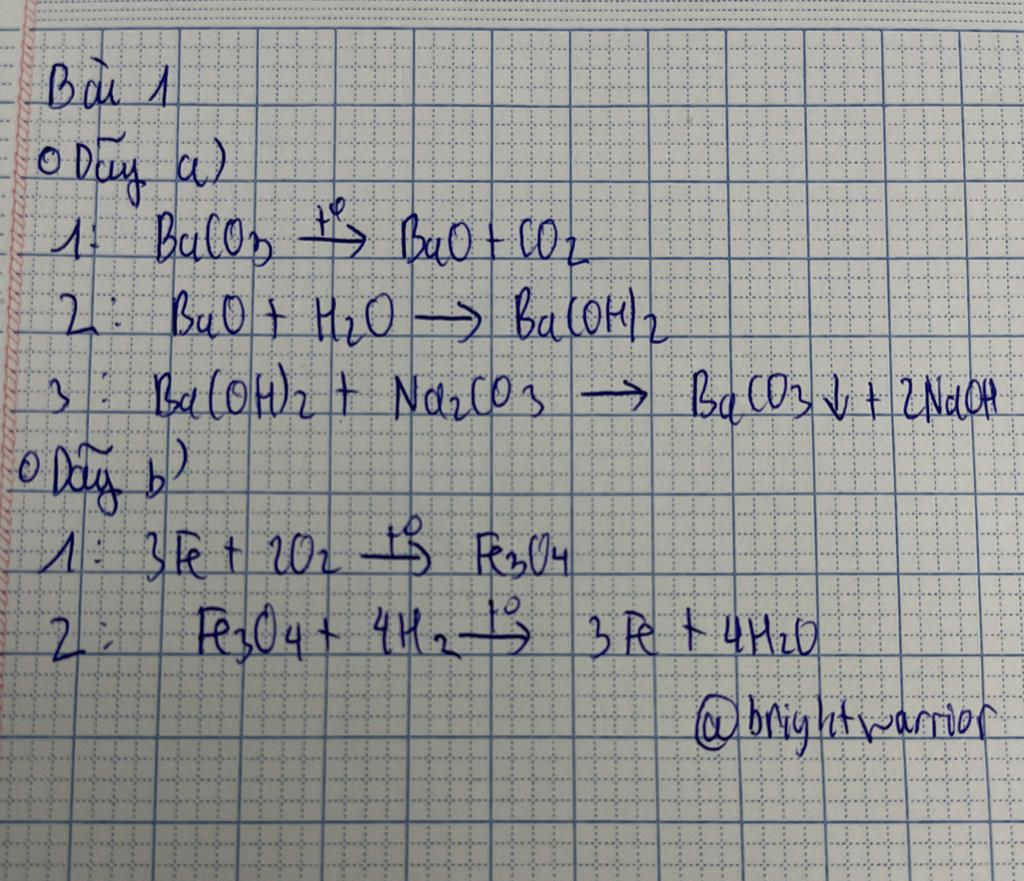 Bài 1
o Dãy a)
1: BaCO3 t° → BaO + CO2
2: BaO + H2O → Ba(OH)2
3: Ba(OH)2 + Na2CO3 → BaCO3↓ + 2NaOH
o Dãy b)
1: 3Fe + 2O2 t° → Fe3O4
2: Fe3O4 + 4H2 t° → 3Fe + 4H2O
@brightwarrior